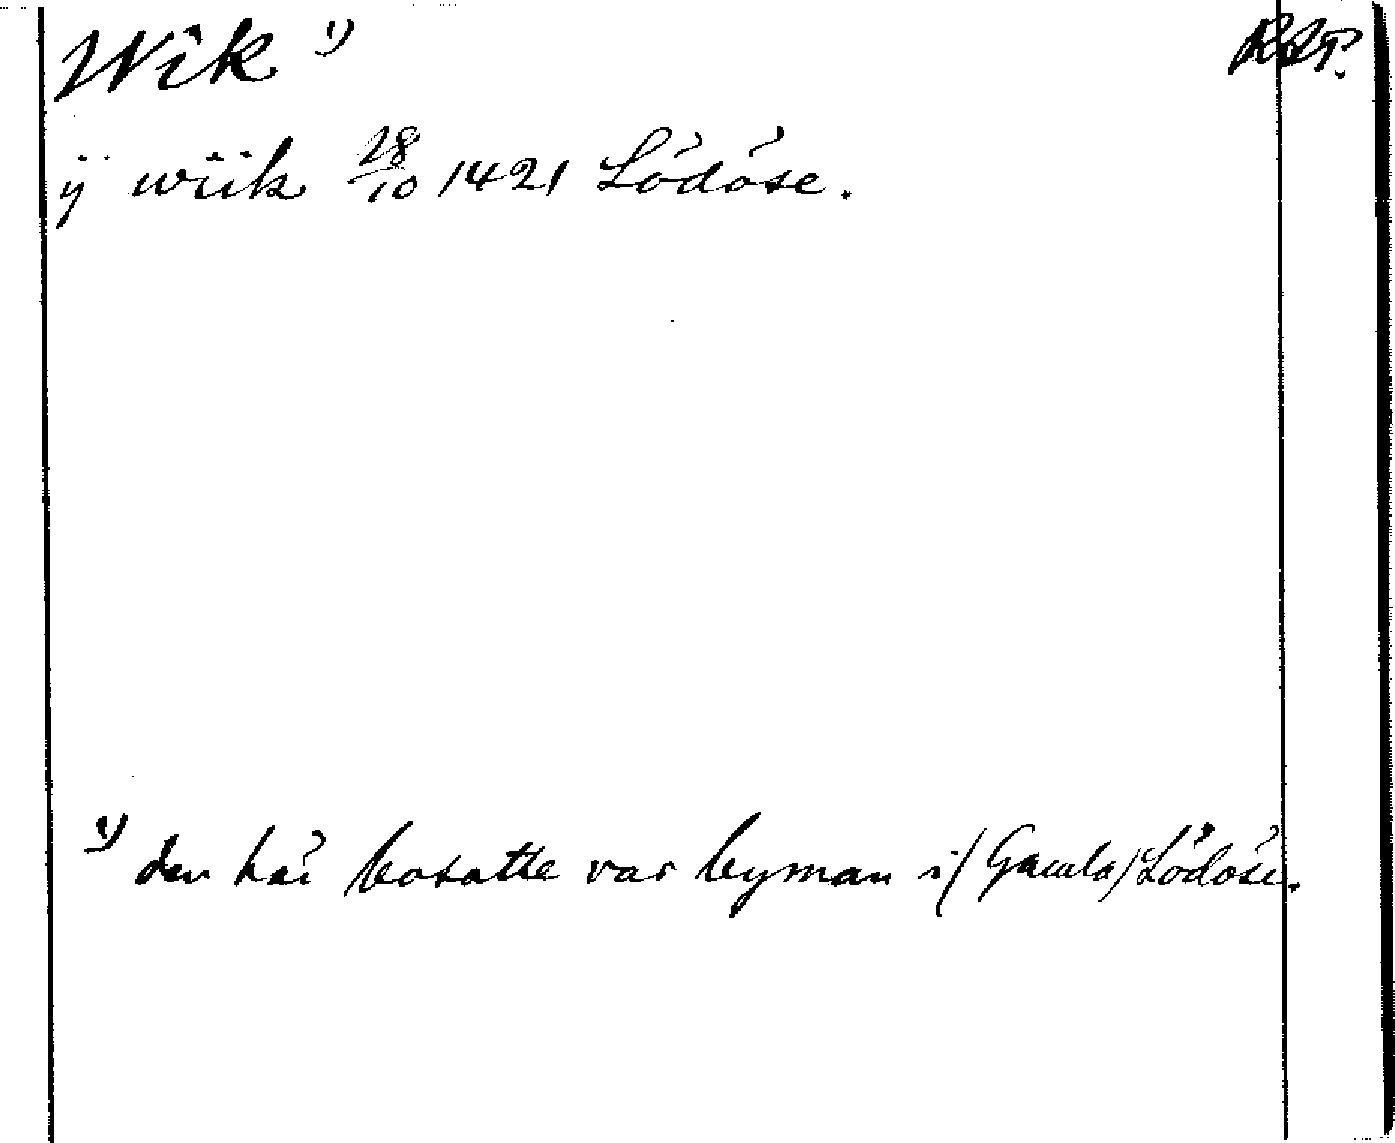 Wik 1)
RAP.
ÿ wiik 28/10 1421 Lödöse.
1) den här bosatte var byman i (Gamla) Lödöse.